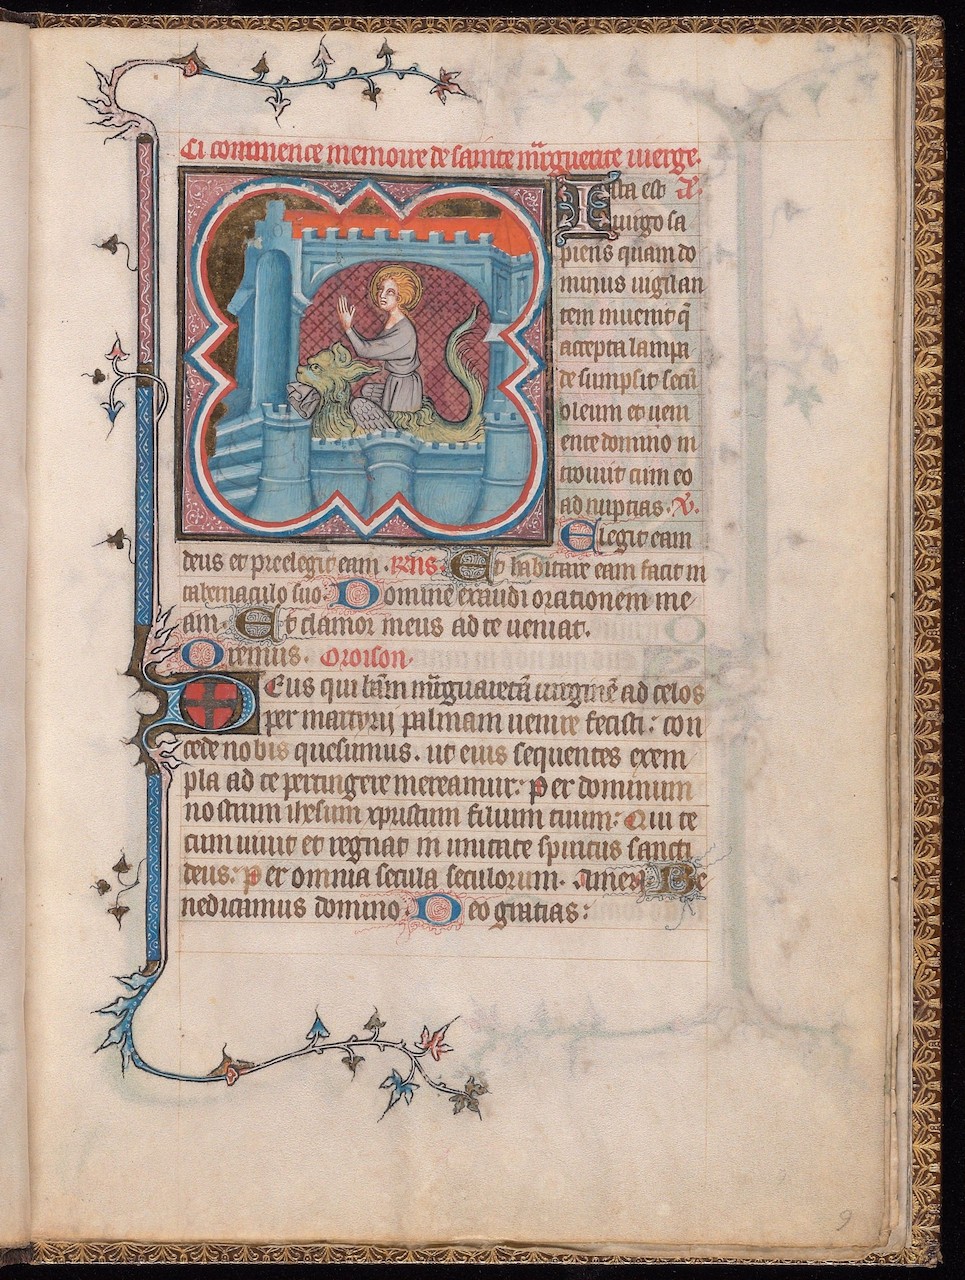 Ci commence memoire de sainte mrguerite vierge.
Ista est
uirgo sa
piens quam do
minus uigilan
tem inuenit q̄
accepta lampa
de sumpsit secū
oleum et ueni
ente domino in
trouit cum eo
ad nuptias. V.
Elegit eam
deus et preelegit eam. Rns. Et habitare eam facit in
tabernaculo suo. Domine exaudi orationem me
am. Et clamor meus ad te ueniat.
Oremus. Oroison.
Deus qui btām mrguaretā uirginē ad celos
per martyrij palmam uenire fecisti: con
cede nobis quesumus. ut eius sequentes exem
pla ad te pertingere mereamur: per dominum
nostrum ihesum xpristum filium tuum: Qui te
cum uiuit et regnat in unitate spiritus sancti
deus: per omnia secula seculorum. amen Be
nedicamus domino. Deo gratias:
9